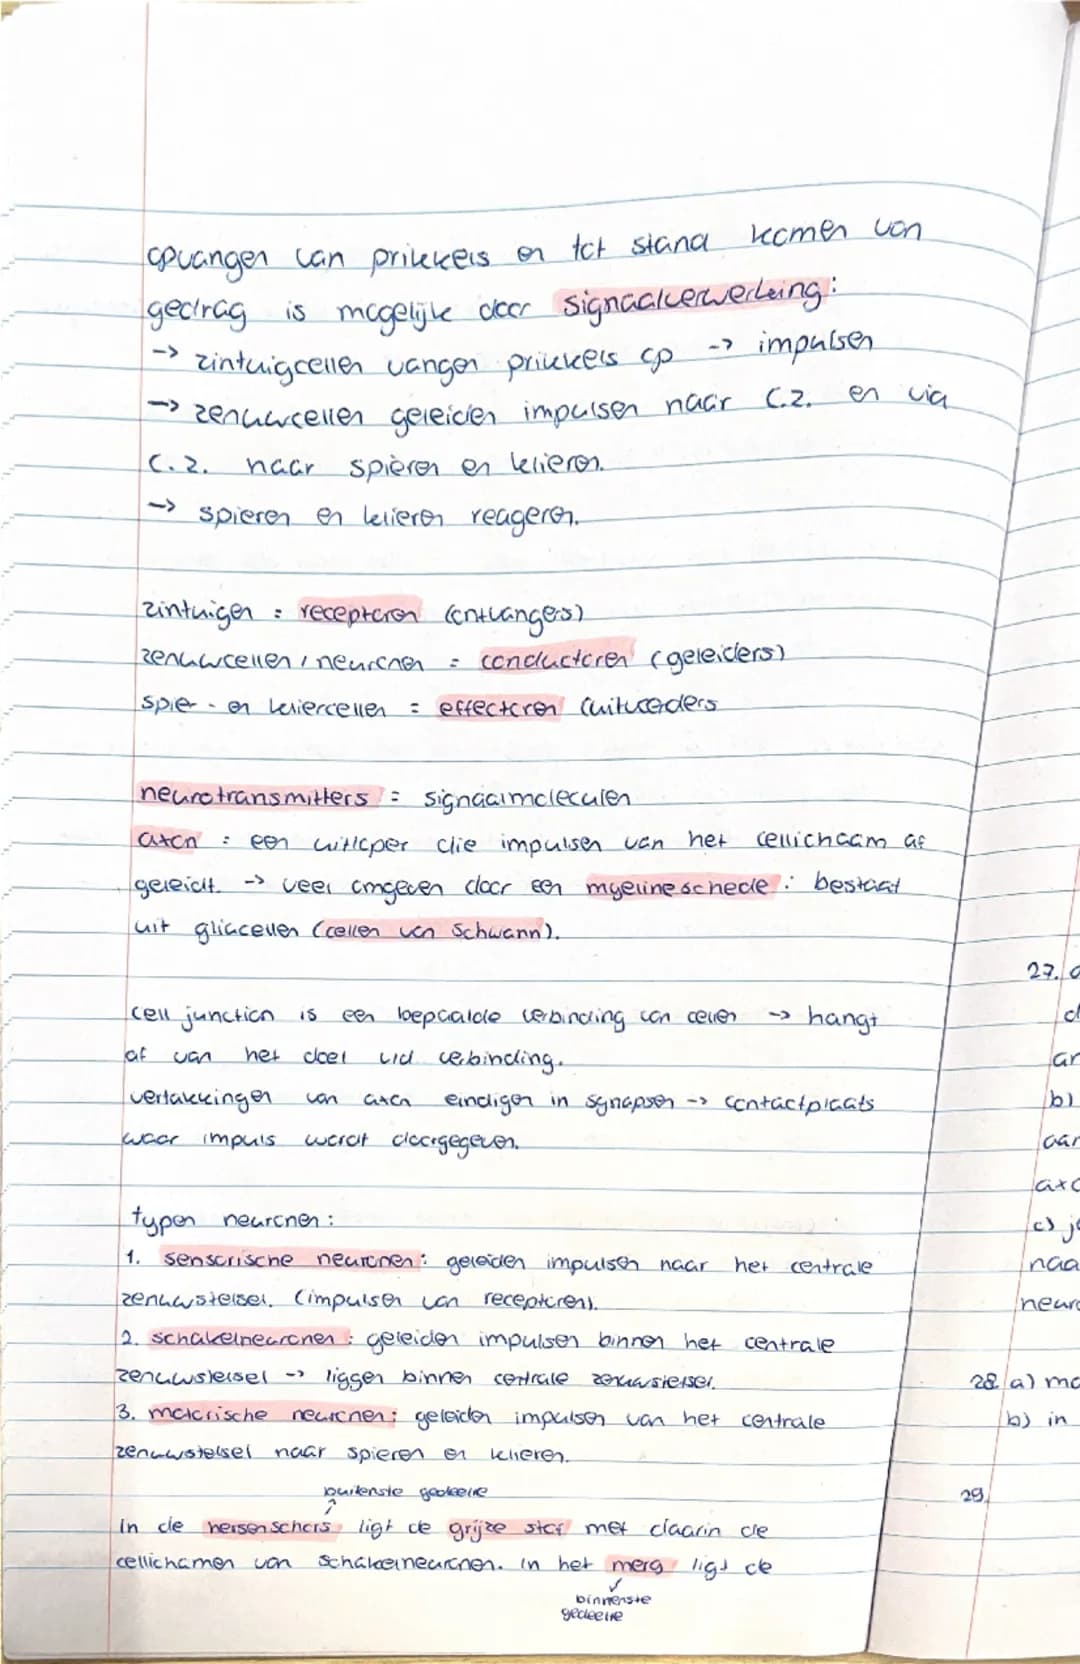 opvangen van prikkels en tot stand komen van
gedrag is mogelijk door signaalverwerking:
-> zintuigcellen vangen prikkels op -> impulsen
-> zenuwcellen geleiden impulsen naar C.Z. en via
C.Z. naar spieren en klieren.
-> spieren en klieren reageren.
zintuigen = receptoren (ontvangers)
zenuwcellen / neuronen = conductoren (geleiders)
spier- en kliercellen = effectoren (uitvoerders
neurotransmitters = signaalmoleculen
axon : een uitloper die impulsen van het cellichaam af
geleidt. -> veel omgeven door een myelineschede : bestaat
uit gliacellen (cellen van Schwann).
cell junction is een bepaalde verbinding van cellen -> hangt
af van het doel v/d verbinding.
vertakkingen van axon eindigen in synapsen -> contactplaats
waar impuls wordt doorgegeven.
typen neuronen :
1. sensorische neuronen : geleiden impulsen naar het centrale
zenuwstelsel. (impulsen van receptoren).
2. schakelneuronen : geleiden impulsen binnen het centrale
zenuwstelsel -> liggen binnen centrale zenuwstelsel.
3. motorische neuronen : geleiden impulsen van het centrale
zenuwstelsel naar spieren en klieren.
buitenste gedeelte
In de hersenschors ligt de grijze stof met daarin de
cellichamen van schakelneuronen. In het merg ligt de
binnenste
gedeelte
27. a
b)
c) je
naa
neuro
28 a) mo
b) in
29.